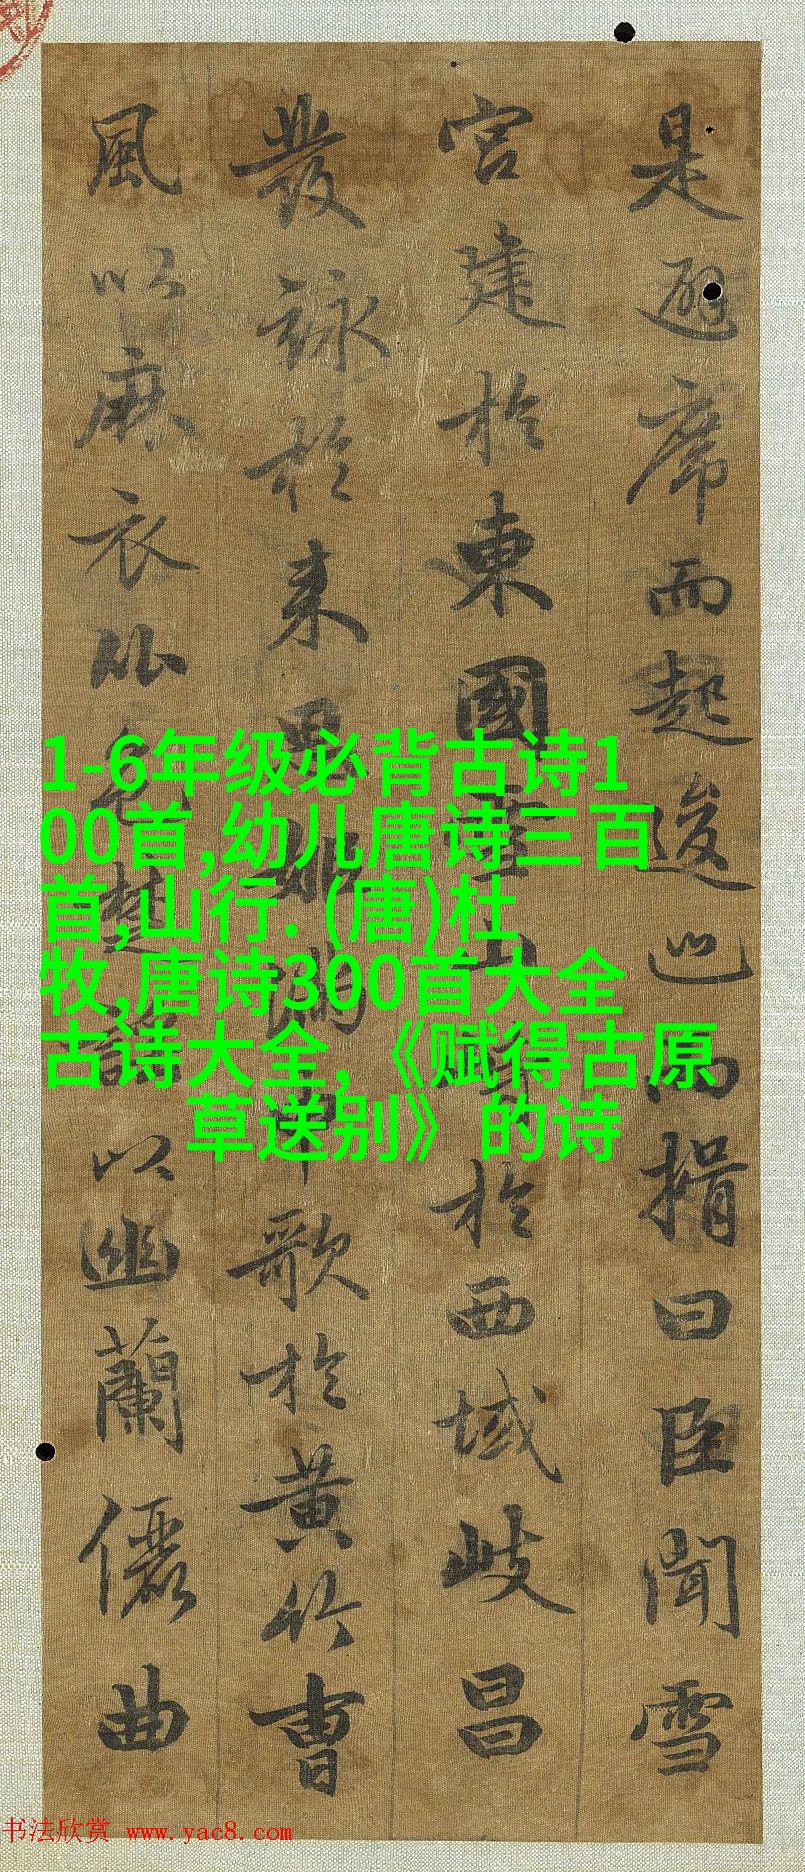 是避席而起逡巡而揖曰臣聞雪
宮建於東國雪山於西域岐昌
發詠於来思姬滿申歌於黄竹曹
風以麻衣比色楚謠以幽蘭儷曲
1-6年级必背古诗1
00首,幼儿唐诗三百
首,山行. (唐)杜
牧,唐诗300首大全
古诗大全,《赋得古原
草送别》的诗
书法欣赏 www.yac8.com